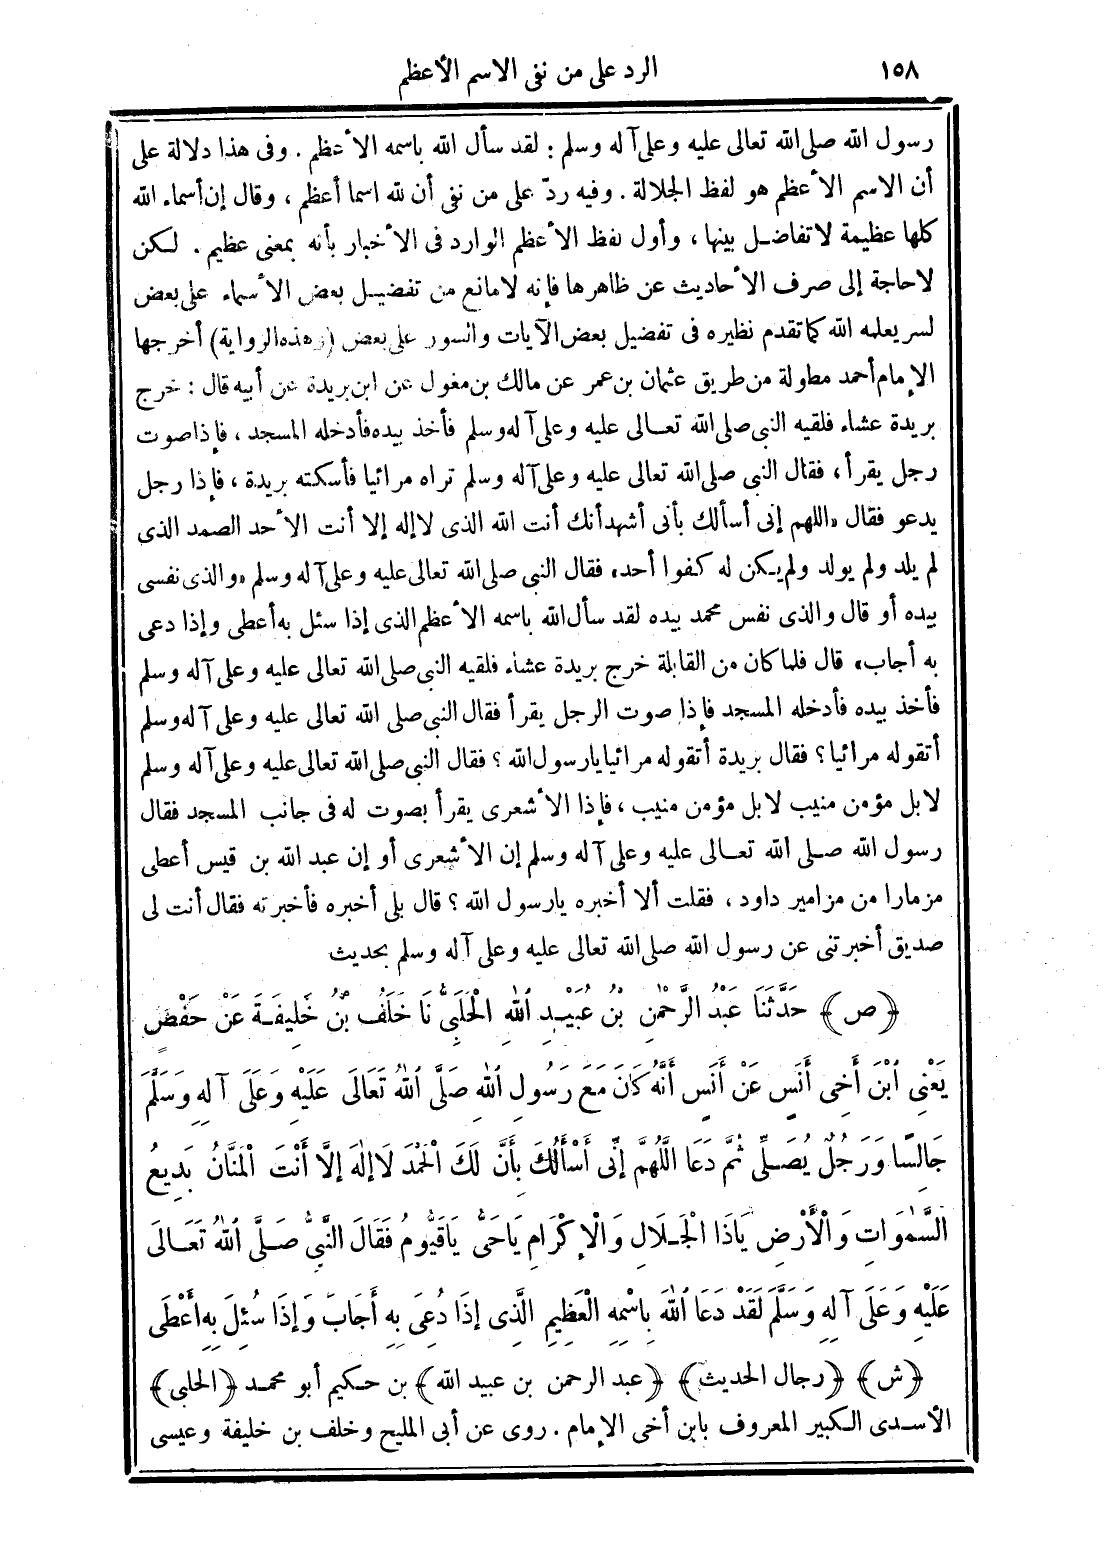 ١٥٨
الرد على من نفى الاسم الأعظم
رسول الله صلى الله تعالى عليه وعلى آله وسلم : لقد سأل الله باسمه الأعظم . وفى هذا دلالة على
أن الاسم الأعظم هو لفظ الجلالة . وفيه ردّ على من نفى أن لله اسما أعظم ، وقال إن أسماء الله
كلها عظيمة لا تفاضل بينها ، وأول لفظ الأعظم الوارد فى الأخبار بأنه بمعنى عظيم . لكن
لا حاجة إلى صرف الأحاديث عن ظاهرها فإنه لا مانع من تفضيل بعض الأسماء على بعض
لسر يعلمه الله كما تقدم نظيره فى تفضيل بعض الآيات والسور على بعض (وهذه الرواية) أخرجها
الإمام أحمد مطولة من طريق عثمان بن عمر عن مالك بن مغول عن ابن بريدة عن أبيه قال : خرج
بريدة عشاء فلقيه النبى صلى الله تعالى عليه وعلى آله وسلم فأخذ بيده فأدخله المسجد ، فإذا صوت
رجل يقرأ ، فقال النبى صلى الله تعالى عليه وعلى آله وسلم تراه مرائيا فأسكته بريدة ، فإذا رجل
يدعو فقال «اللهم إنى أسألك بأنى أشهد أنك أنت الله الذى لا إله إلا أنت الأحد الصمد الذى
لم يلد ولم يولد ولم يكن له كفوا أحد» فقال النبى صلى الله تعالى عليه وعلى آله وسلم «والذى نفسى
بيده أو قال والذى نفس محمد بيده لقد سأل الله باسمه الأعظم الذى إذا سئل به أعطى وإذا دعى
به أجاب» قال فلما كان من القابلة خرج بريدة عشاء فلقيه النبى صلى الله تعالى عليه وعلى آله وسلم
فأخذ بيده فأدخله المسجد فإذا صوت الرجل يقرأ فقال النبى صلى الله تعالى عليه وعلى آله وسلم
أتقوله مرائيا ؟ فقال بريدة أتقوله مرائيا يا رسول الله ؟ فقال النبى صلى الله تعالى عليه وعلى آله وسلم
لا بل مؤمن منيب لا بل مؤمن منيب ، فإذا الأشعرى يقرأ بصوت له فى جانب المسجد فقال
رسول الله صلى الله تعالى عليه وعلى آله وسلم إن الأشعرى أو إن عبد الله بن قيس أعطى
مزمارا من مزامير داود ، فقلت ألا أخبره يا رسول الله ؟ قال بلى أخبره فأخبرته فقال أنت لى
صديق أخبرتنى عن رسول الله صلى الله تعالى عليه وعلى آله وسلم بحديث
﴿ص﴾ حَدَّثَنَا عَبْدُ الرَّحْمٰنِ بْنُ عُبَيْدِ اللهِ الْحَلَبِىُّ نَا خَلَفُ بْنُ خَلِيفَةَ عَنْ حَفْصٍ
يَعْنِى ابْنَ أَخِى أَنَسٍ عَنْ أَنَسٍ أَنَّهُ كَانَ مَعَ رَسُولِ اللهِ صَلَّى اللهُ تَعَالَى عَلَيْهِ وَعَلَى آلِهِ وَسَلَّمَ
جَالِسًا وَرَجُلٌ يُصَلِّى ثُمَّ دَعَا اللَّهُمَّ إِنِّى أَسْأَلُكَ بِأَنَّ لَكَ الْحَمْدَ لَا إِلٰهَ إِلَّا أَنْتَ الْمَنَّانُ بَدِيعُ
السَّمٰوَاتِ وَالْأَرْضِ يَاذَا الْجَلَالِ وَالْإِكْرَامِ يَاحَىُّ يَاقَيُّومُ فَقَالَ النَّبِىُّ صَلَّى اللهُ تَعَالَى
عَلَيْهِ وَعَلَى آلِهِ وَسَلَّمَ لَقَدْ دَعَا اللهَ بِاسْمِهِ الْعَظِيمِ الَّذِى إِذَا دُعِىَ بِهِ أَجَابَ وَإِذَا سُئِلَ بِهِ أَعْطَى
﴿ش﴾ ﴿رجال الحديث﴾ ﴿عبد الرحمن بن عبيد الله﴾ بن حكيم أبو محمد ﴿الحلبى﴾
الأسدى الكبير المعروف بابن أخى الإمام . روى عن أبى المليح وخلف بن خليفة وعيسى